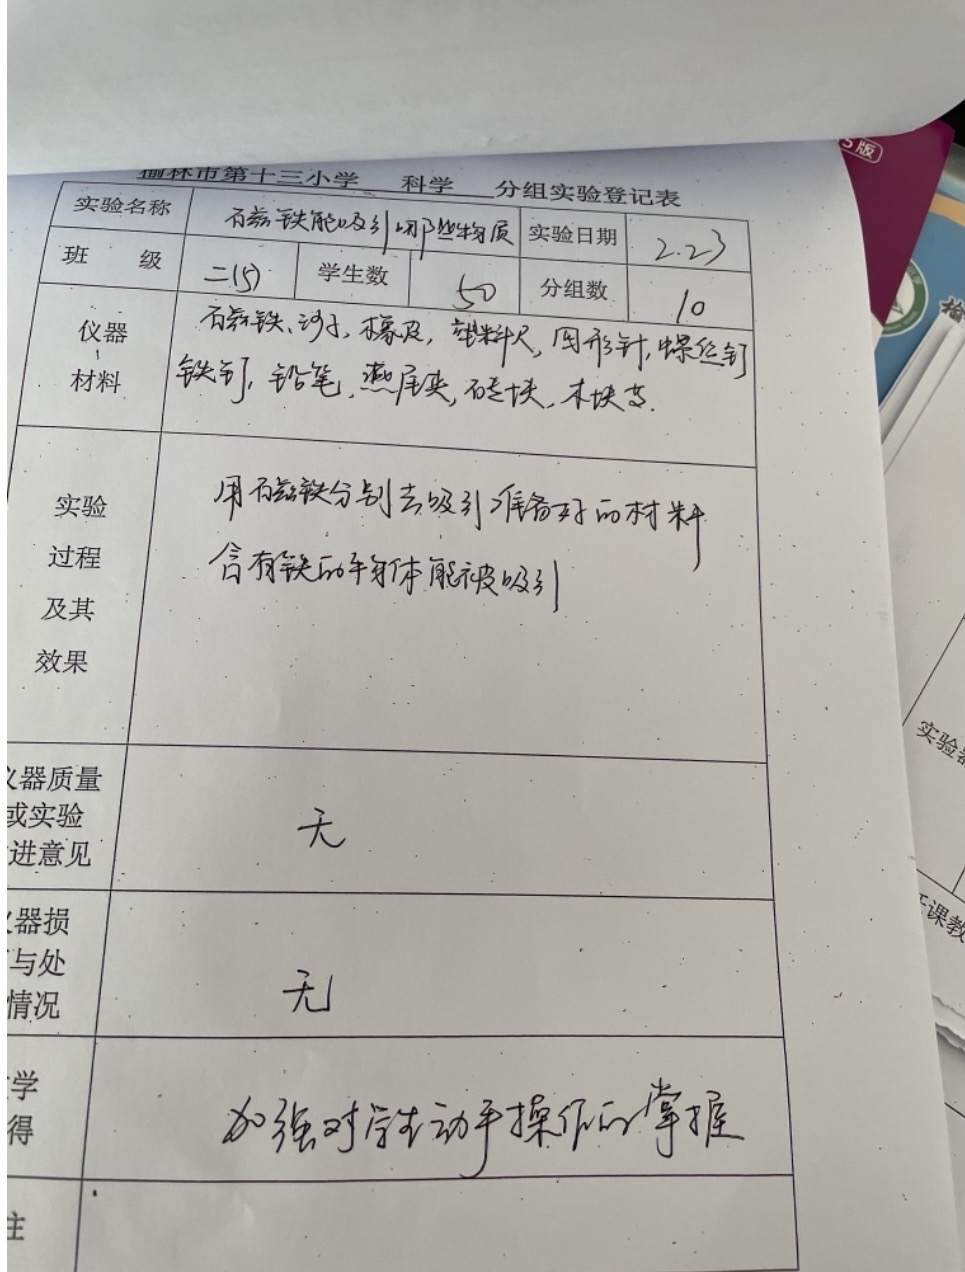 榆林市第十三小学 科学 分组实验登记表
实验名称 石磁铁能吸引哪些物质 实验日期 2.23
班 级 二(5) 学生数 50 分组数 10
仪器 材料
石磁铁、沙子、橡皮,塑料尺,回形针,螺丝钉
铁钉,铅笔,燕尾夹,砖块、木块等.
实验
过程
及其
效果
用石磁铁分别去吸引准备好的材料
含有铁的半身体能被吸引
仪器质量
或实验
进意见
无
仪器损
与处
情况
无
学
得
加强对学生动手操作的掌握
注
5版
实验器
课教